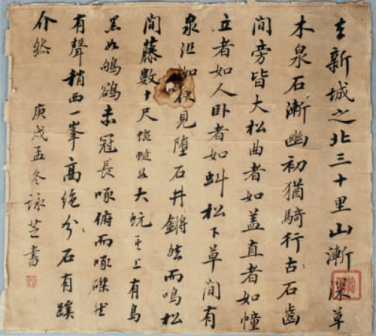 去新城之北三十里山漸深草
木泉石漸幽初猶騎行古石齒
間旁皆大松曲者如蓋直者如幢
立者如人卧者如虬松下草間有
泉沮洳伏見墮石井鏘然而鳴松
間藤數十尺蜿蜒如大蚖其上有鳥
黑如鴝鵒赤冠長啄俯而啄磔然
有聲稍西一峯高絕分石有蹊
介然 庚戌孟冬詠芝書